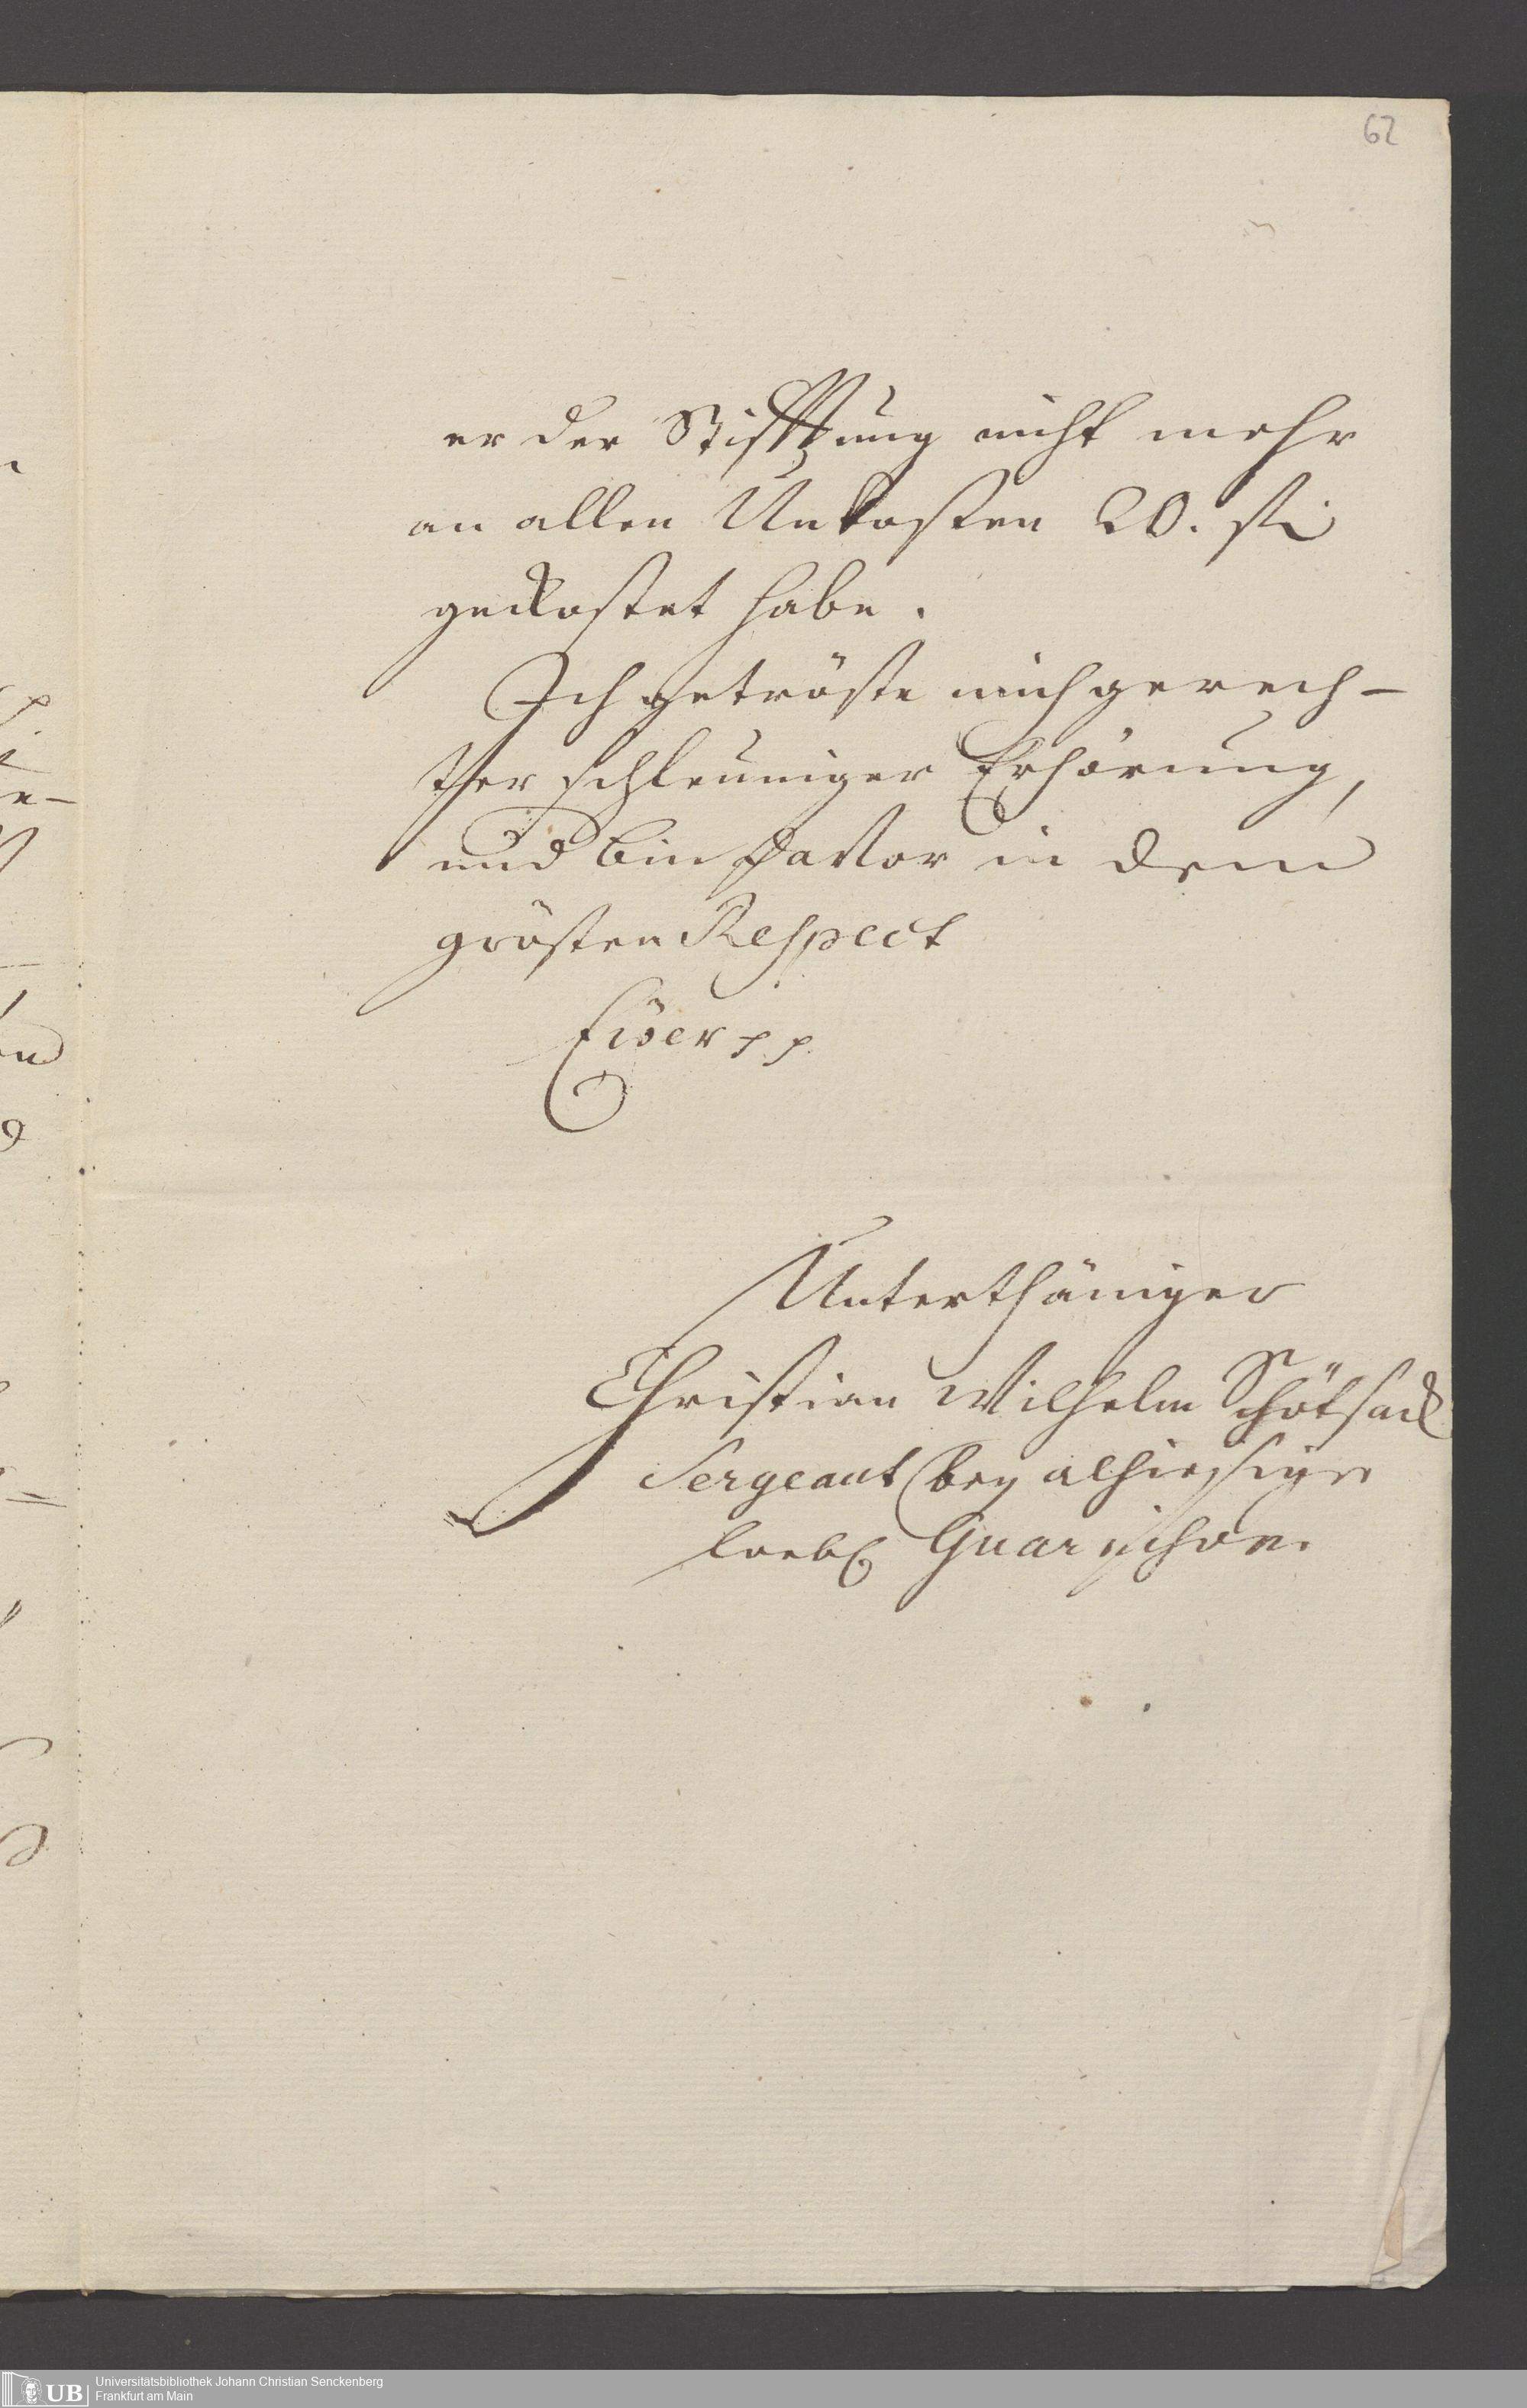 62
er der Stifftung nicht mehr
an allen Unkosten 20. fl
geckostet habe.
Ich getröste mich gerech-
ter schleuniger Erhörung,
und bin davor in dem
grösten Respect
Ewer pp.
Unterthäniger
Christian Wilhelm Schötsack
Sergeant bey alhiesiger
loebl Guarnison.
UB Universitätsbibliothek Johann Christian Senckenberg
Frankfurt am Main